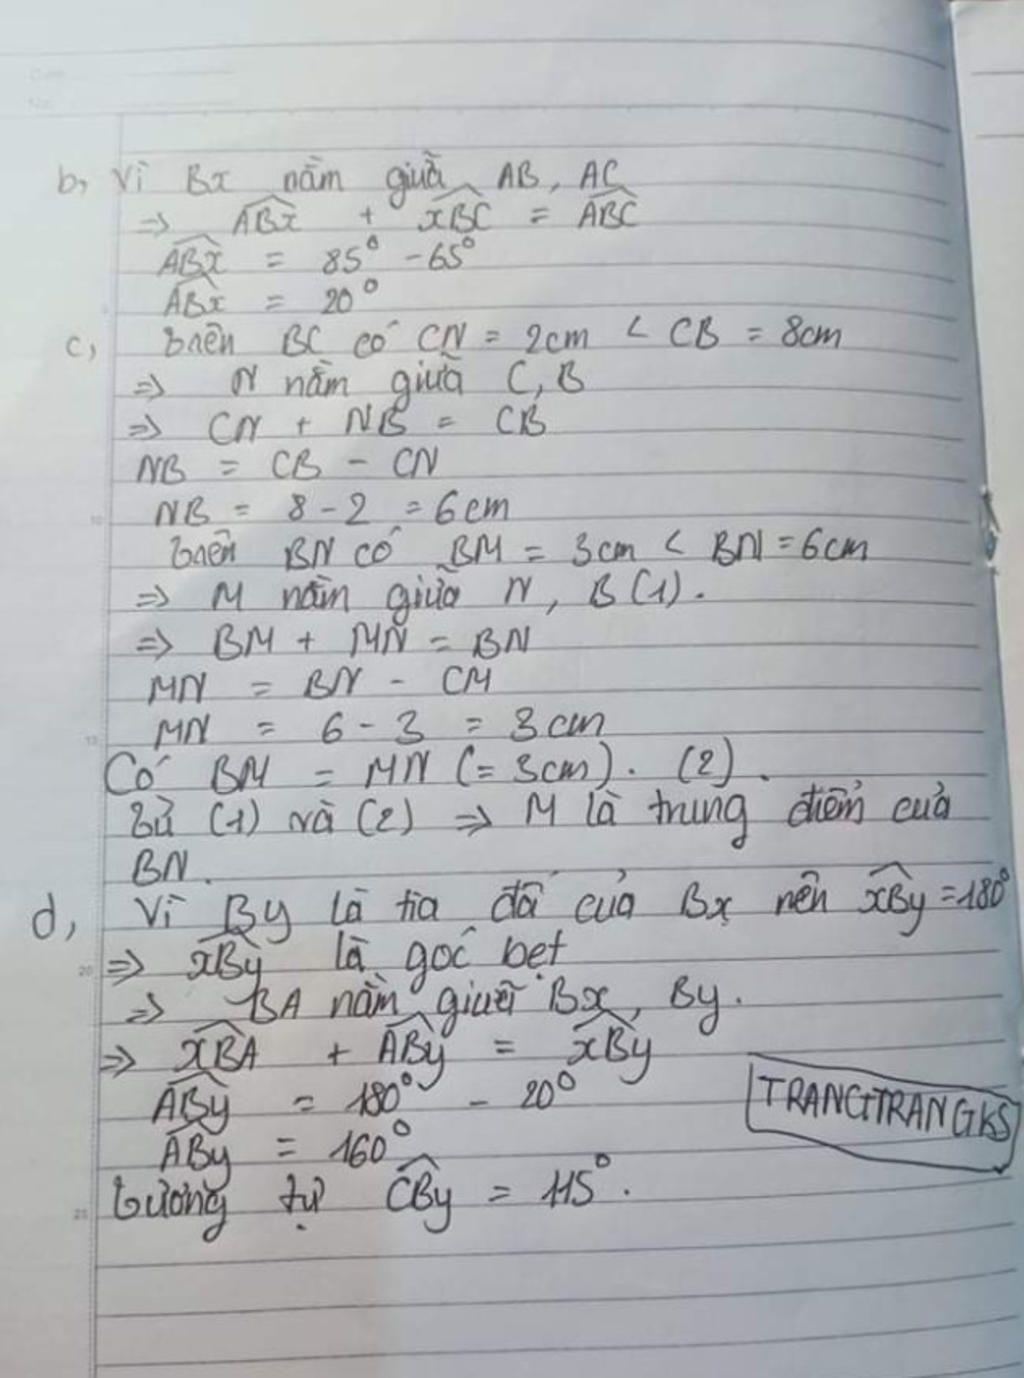 b, Vì Bx nằm giữa AB, AC
=> ABx + xBC = ABC
ABx = 85° - 65°
ABx = 20°
c, Trên BC có CN = 2cm < CB = 8cm
=> N nằm giữa C, B
=> CN + NB = CB
NB = CB - CN
NB = 8 - 2 = 6cm
Trên BN có BM = 3cm < BN = 6cm
=> M nằm giữa N, B (1).
=> BM + MN = BN
MN = BN - CM
MN = 6 - 3 = 3cm
Có BM = MN (= 3cm). (2).
Từ (1) và (2) => M là trung điểm của
BN.
d, Vì By là tia đối của Bx nên xBy = 180°
=> xBy là góc bẹt
=> BA nằm giữa Bx, By.
=> xBA + ABy = xBy
ABy = 180° - 20°
ABy = 160°
TRANGTRANGKS
Tương tự CBy = 115°.